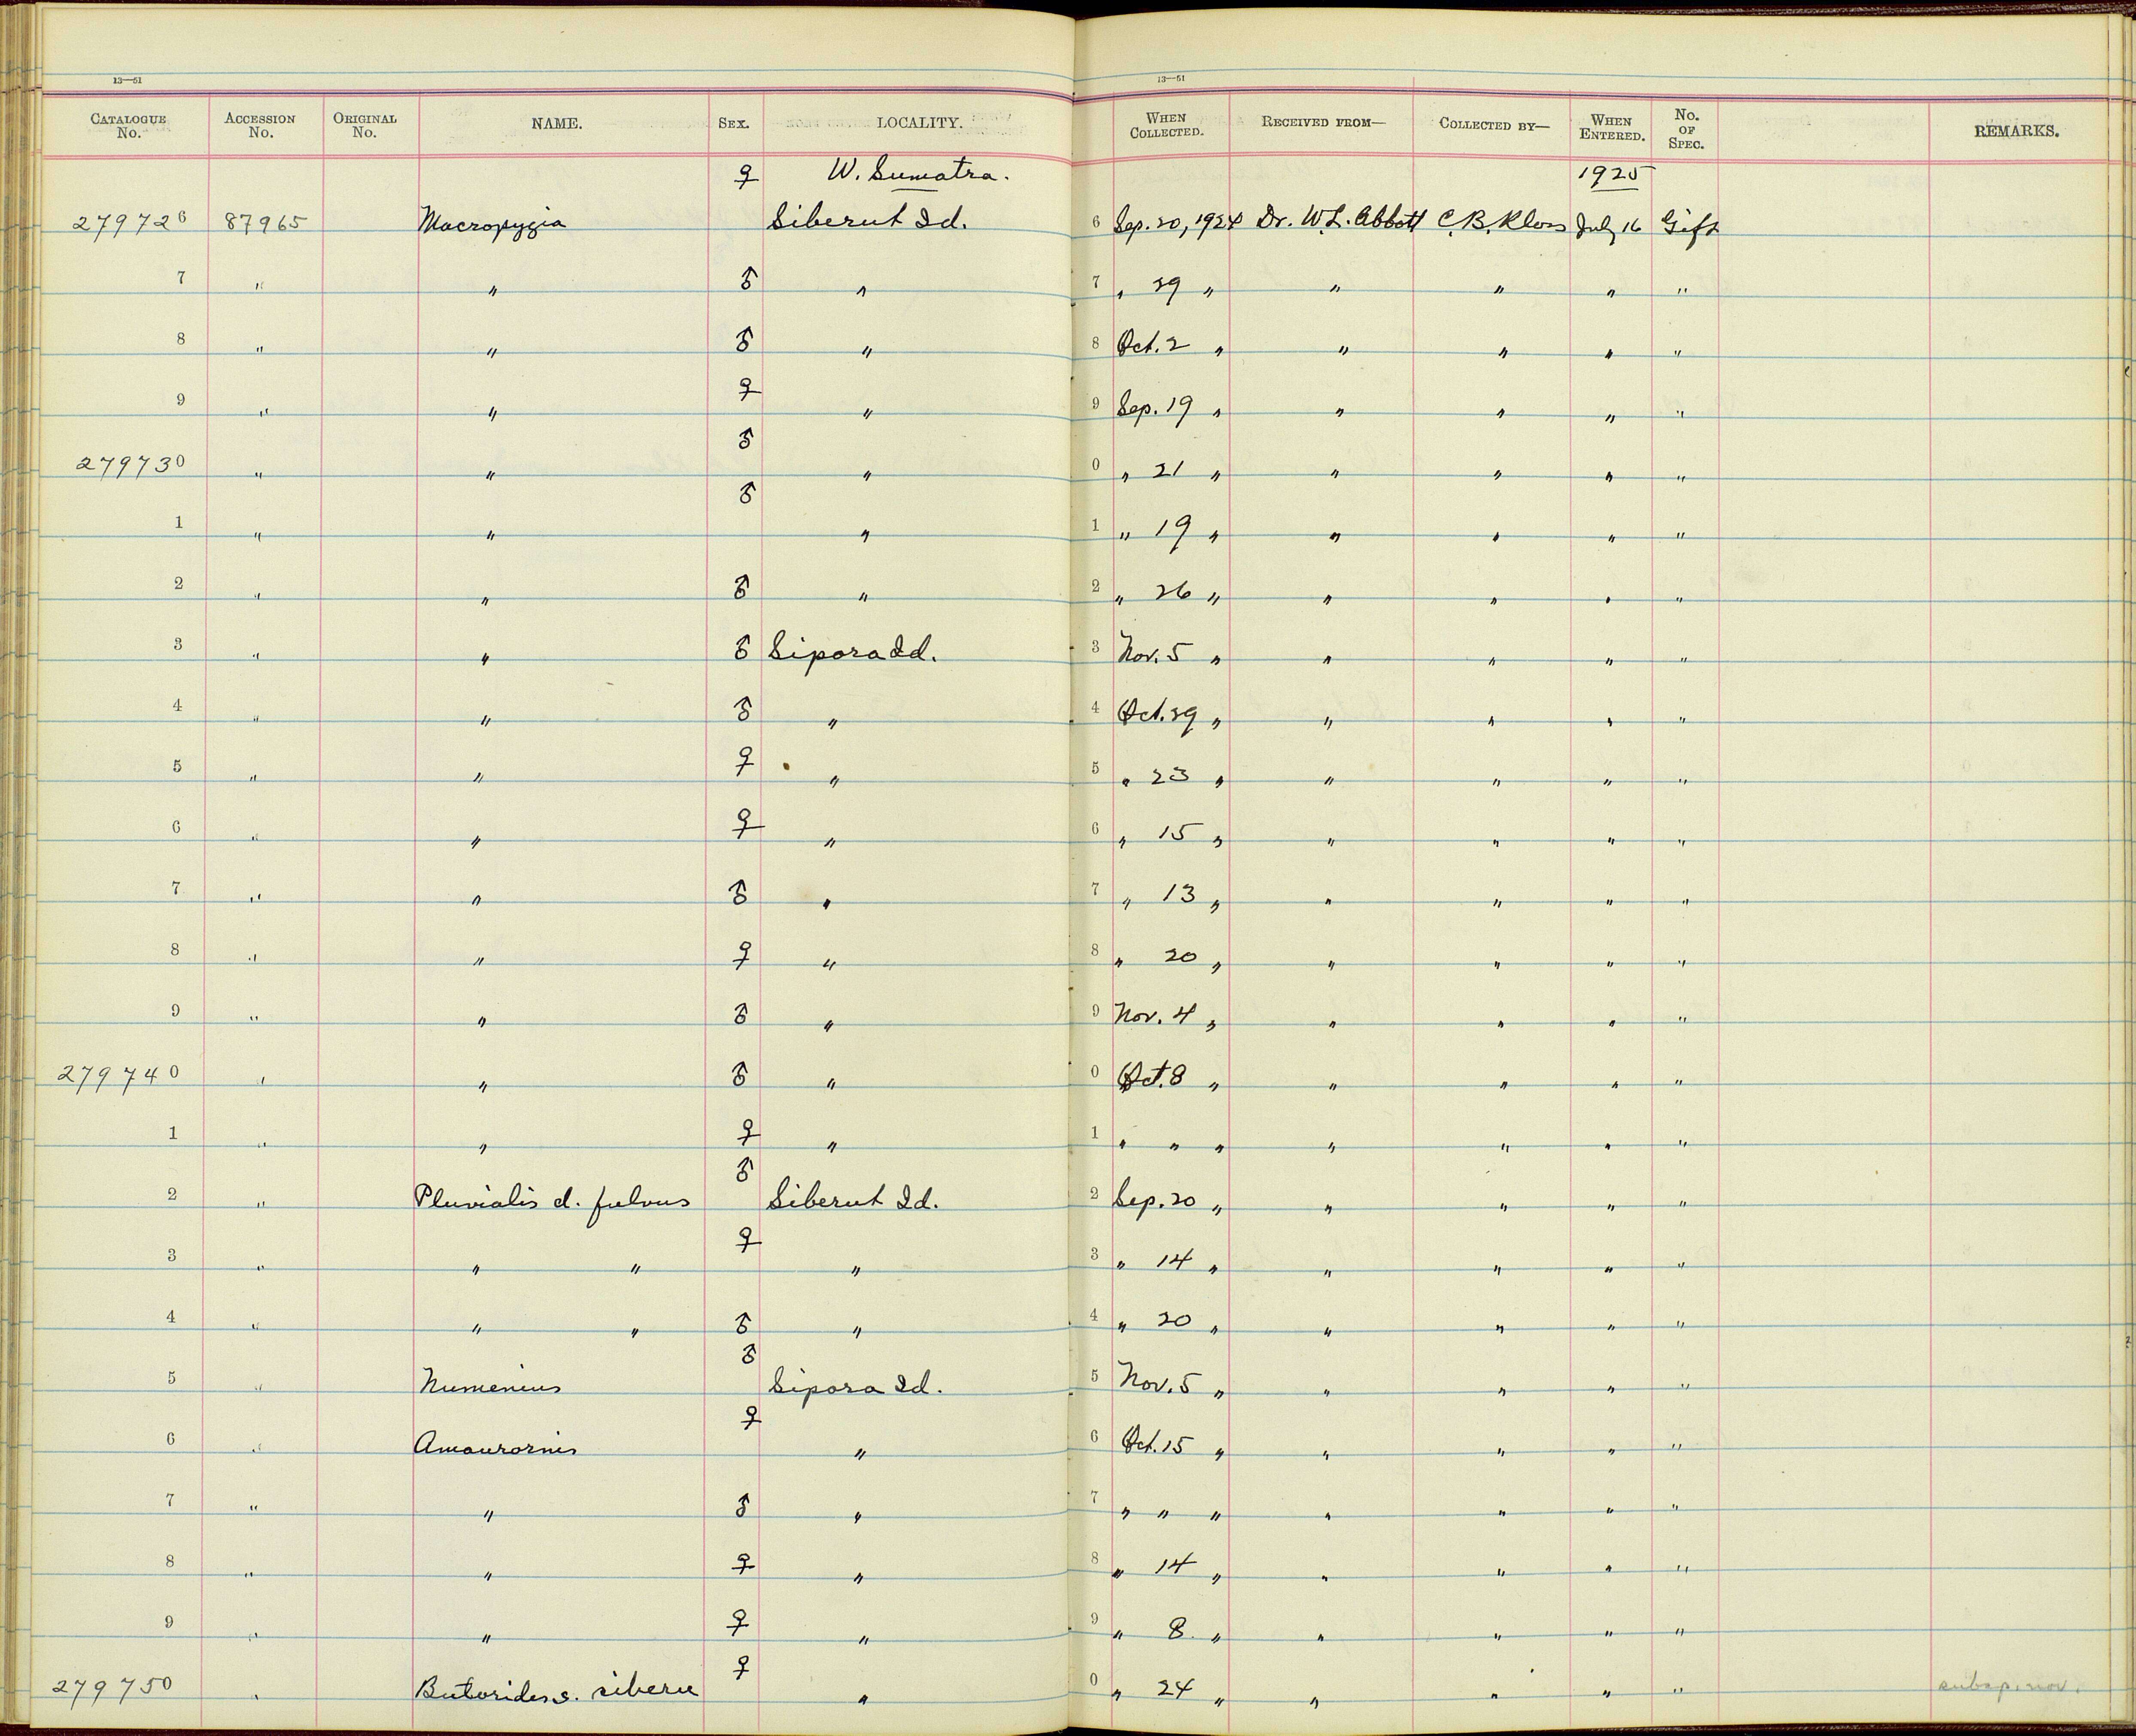 13—51 13—51
CATALOGUE No. ACCESSION No. ORIGINAL No. NAME. SEX. LOCALITY. WHEN COLLECTED. RECEIVED FROM— COLLECTED BY— WHEN ENTERED. No. OF SPEC. REMARKS.
♀ W. Sumatra. 1925
279726 87965 Macropygia Siberut Id. 6 Sep. 20, 1924 Dr. W. L. Abbott C. B. Kloss July 16 Gift
7 " " ♂ " 7 " 29 " " " " "
8 " " ♂ " 8 Oct. 2 " " " " "
9 " " ♀ " 9 Sep. 19 " " " " "
279730 " " ♂ " 0 " 21 " " " " "
1 " " ♂ " 1 " 19 " " " " "
2 " " ♂ " 2 " 26 " " " " "
3 " " ♂ Sipora Id. 3 Nov. 5 " " " " "
4 " " ♂ " 4 Oct. 29 " " " " "
5 " " ♀ " 5 " 23 " " " " "
6 " " ♀ " 6 " 15 " " " " "
7 " " ♂ " 7 " 13 " " " " "
8 " " ♀ " 8 " 20 " " " " "
9 " " ♂ " 9 Nov. 4 " " " " "
279740 " " ♂ " 0 Oct. 8 " " " " "
1 " " ♀ " 1 " " " " " " "
2 " Pluvialis d. fulvus ♂ Siberut Id. 2 Sep. 20 " " " " "
3 " " " ♀ " 3 " 14 " " " " "
4 " " " ♂ " 4 " 20 " " " " "
5 " Numenius ♂ Sipora Id. 5 Nov. 5 " " " " "
6 " Amaurornis ♀ " 6 Oct. 15 " " " " "
7 " " ♂ " 7 " " " " " " "
8 " " ♀ " 8 " 14 " " " " "
9 " " ♀ " 9 " 8 " " " " "
279750 " Butorides s. siberu ♀ " 0 " 24 " " " " " subsp. nov.